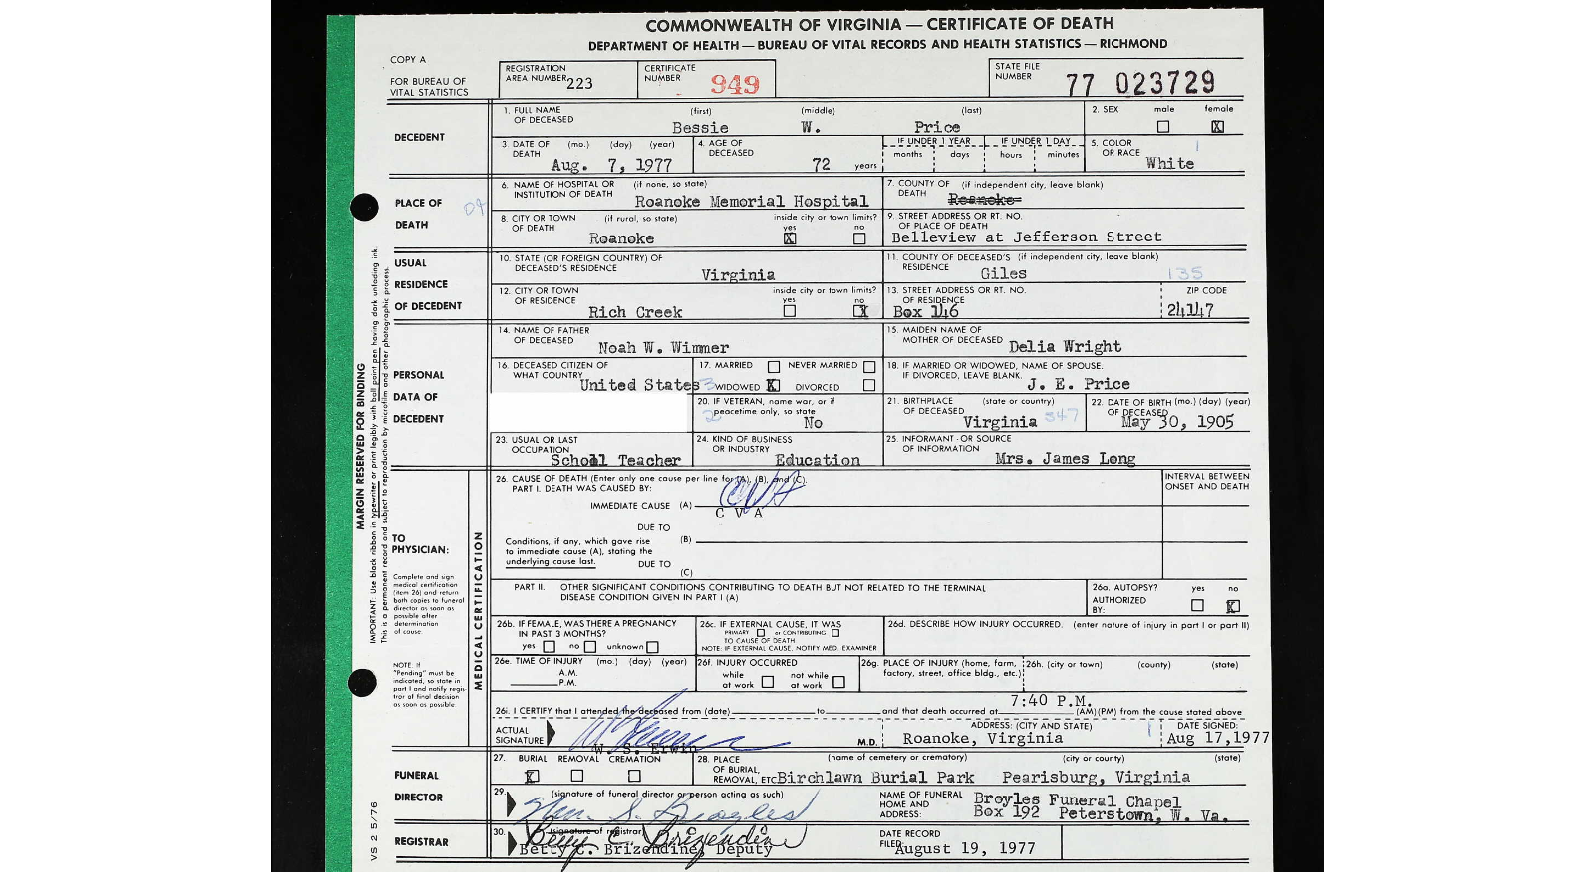 COMMONWEALTH OF VIRGINIA — CERTIFICATE OF DEATH
DEPARTMENT OF HEALTH — BUREAU OF VITAL RECORDS AND HEALTH STATISTICS — RICHMOND
COPY A
FOR BUREAU OF VITAL STATISTICS
REGISTRATION AREA NUMBER 223
CERTIFICATE NUMBER 949
STATE FILE NUMBER 77 023729
DECEDENT
1. FULL NAME OF DECEASED (first) (middle) (last)
Bessie W. Price
2. SEX male female X
3. DATE OF DEATH (mo.) (day) (year)
Aug. 7, 1977
4. AGE OF DECEASED 72 years
IF UNDER 1 YEAR months days
IF UNDER 1 DAY hours minutes
5. COLOR OF RACE White
PLACE OF DEATH
6. NAME OF HOSPITAL OR INSTITUTION OF DEATH (if none, so state)
Roanoke Memorial Hospital
7. COUNTY OF DEATH (if independent city, leave blank)
Roanoke
8. CITY OR TOWN OF DEATH (if rural, so state)
Roanoke
inside city or town limits? yes X no
9. STREET ADDRESS OR RT. NO. OF PLACE OF DEATH
Belleview at Jefferson Street
USUAL RESIDENCE OF DECEDENT
10. STATE (OR FOREIGN COUNTRY) OF DECEASED'S RESIDENCE
Virginia
11. COUNTY OF DECEASED'S RESIDENCE (if independent city, leave blank)
Giles 135
12. CITY OR TOWN OF RESIDENCE
Rich Creek
inside city or town limits? yes no X
13. STREET ADDRESS OR RT. NO. OF RESIDENCE
Box 146
ZIP CODE
24147
PERSONAL DATA OF DECEDENT
14. NAME OF FATHER OF DECEASED
Noah W. Wimmer
15. MAIDEN NAME OF MOTHER OF DECEASED
Delia Wright
16. DECEASED CITIZEN OF WHAT COUNTRY
United States
17. MARRIED NEVER MARRIED
WIDOWED X DIVORCED
18. IF MARRIED OR WIDOWED, NAME OF SPOUSE. IF DIVORCED, LEAVE BLANK.
J. E. Price
20. IF VETERAN, name war, or if peacetime only, so state
No
21. BIRTHPLACE OF DECEASED (state or country)
Virginia 547
22. DATE OF BIRTH (mo.) (day) (year) OF DECEASED
May 30, 1905
23. USUAL OR LAST OCCUPATION
School Teacher
24. KIND OF BUSINESS OR INDUSTRY
Education
25. INFORMANT · OR SOURCE OF INFORMATION
Mrs. James Long
MARGIN RESERVED FOR BINDING
IMPORTANT: Use black ribbon in typewriter or print legibly with ball point pen having dark unfading ink.
This is a permanent record and subject to reproduction by microfilm and other photographic process.
TO PHYSICIAN:
Complete and sign medical certification (item 26) and return both copies to funeral director as soon as possible after determination of cause.
NOTE: If "Pending" must be indicated, so state in part I and notify registrar of final decision as soon as possible.
MEDICAL CERTIFICATION
26. CAUSE OF DEATH (Enter only one cause per line for (A), (B), and (C).
PART I. DEATH WAS CAUSED BY:
INTERVAL BETWEEN ONSET AND DEATH
CVA
IMMEDIATE CAUSE (A)
C V A
DUE TO
Conditions, if any, which gave rise to immediate cause (A), stating the underlying cause last.
(B)
DUE TO
(C)
PART II. OTHER SIGNIFICANT CONDITIONS CONTRIBUTING TO DEATH BUT NOT RELATED TO THE TERMINAL DISEASE CONDITION GIVEN IN PART I (A)
26a. AUTOPSY? yes no
AUTHORIZED BY: X
26b. IF FEMALE, WAS THERE A PREGNANCY IN PAST 3 MONTHS?
yes no unknown
26c. IF EXTERNAL CAUSE, IT WAS
PRIMARY or CONTRIBUTING
TO CAUSE OF DEATH
NOTE: IF EXTERNAL CAUSE, NOTIFY MED. EXAMINER
26d. DESCRIBE HOW INJURY OCCURRED. (enter nature of injury in part I or part II)
26e. TIME OF INJURY (mo.) (day) (year)
A.M.
P.M.
26f. INJURY OCCURRED
while at work not while at work
26g. PLACE OF INJURY (home, farm, factory, street, office bldg., etc.)
26h. (city or town) (county) (state)
7:40 P.M.
26i. I CERTIFY that I attended the deceased from (date) to and that death occurred at (AM)(PM) from the cause stated above
ACTUAL SIGNATURE
W. S. Erwin
M.D.
ADDRESS: (CITY AND STATE)
Roanoke, Virginia
DATE SIGNED:
Aug 17,1977
FUNERAL DIRECTOR
27. BURIAL REMOVAL CREMATION
X
28. PLACE OF BURIAL, REMOVAL, ETC (name of cemetery or crematory) (city or county) (state)
Birchlawn Burial Park Pearisburg, Virginia
29. (signature of funeral director or person acting as such)
Wm. S. Broyles
NAME OF FUNERAL HOME AND ADDRESS:
Broyles Funeral Chapel
Box 192 Peterstown, W. Va.
REGISTRAR
30. (signature of registrar)
Betty C. Brizendine
Betty C. Brizendine, Deputy
DATE RECORD FILED
August 19, 1977
VS 2 5/76